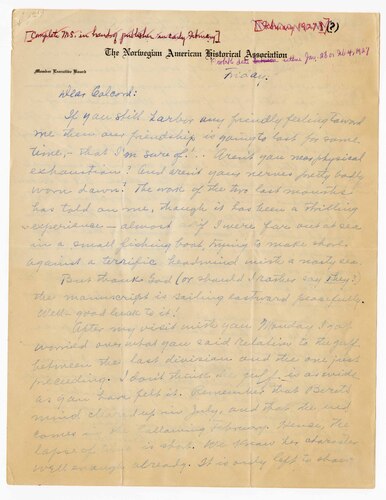 [Complete MS. in hands of publisher in early February]
[February, 1927?] (?)
The Norwegian American Historical Association
Member Executive Board
Friday.
Dear Colcord:
If you still harbor any friendly feeling toward
me then our friendship is going to last for some
time, - that I'm sure of! .. Aren't you near physical
exhaustion? And aren't your nerves pretty badly
worn down? The work of the two last months
has told on me, though it has been a thrilling
experience - almost as if I were far out at sea
in a small fishing boat, trying to make shore
against a terrific headwind with a nasty sea.
But thank God (or should I rather say they?)
the manuscript is sailing eastward peacefully.
Well - good luck to it!
After my visit with you Monday I got
worried over what you said relation to the gap
between the last division and the one just
preceding. I don't think the gap is as wide
as you have felt it. Remember that Beret's
mind cleared up in July, and that the end
comes in the following February. Hence, the
lapse of time is short. We know her character
well enough already. It is only left to show